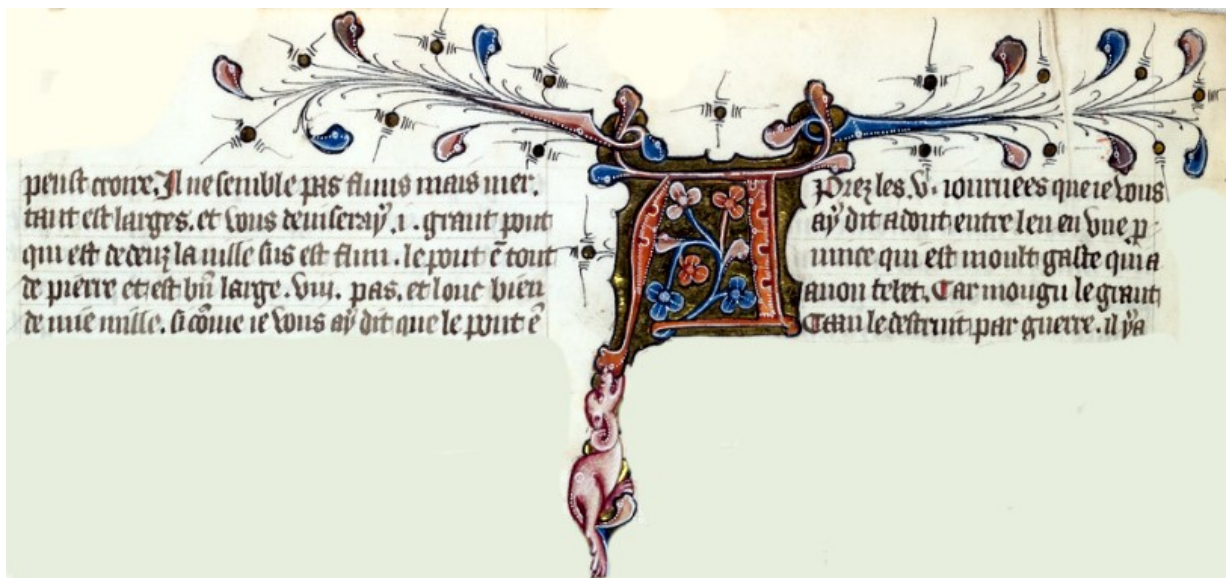 peust croire. Il ne semble pas fluns mais mer.
tant est larges. et vous deuiseray .i. grant pont
qui est dedenz la uille sus cest flun. le pont ẽ tout
de pierre et est bñ large .viij. pas. et lonc bien
de mie mille. si cõme ie vous ay dit que le pont ẽ
APrez les .v. iournees que ie vous
ay dit adont entre len en vne p
uince qui est moult gaste qui a
a non tebet. Car mongu le grant
Caan le destruit par guerre. il y a